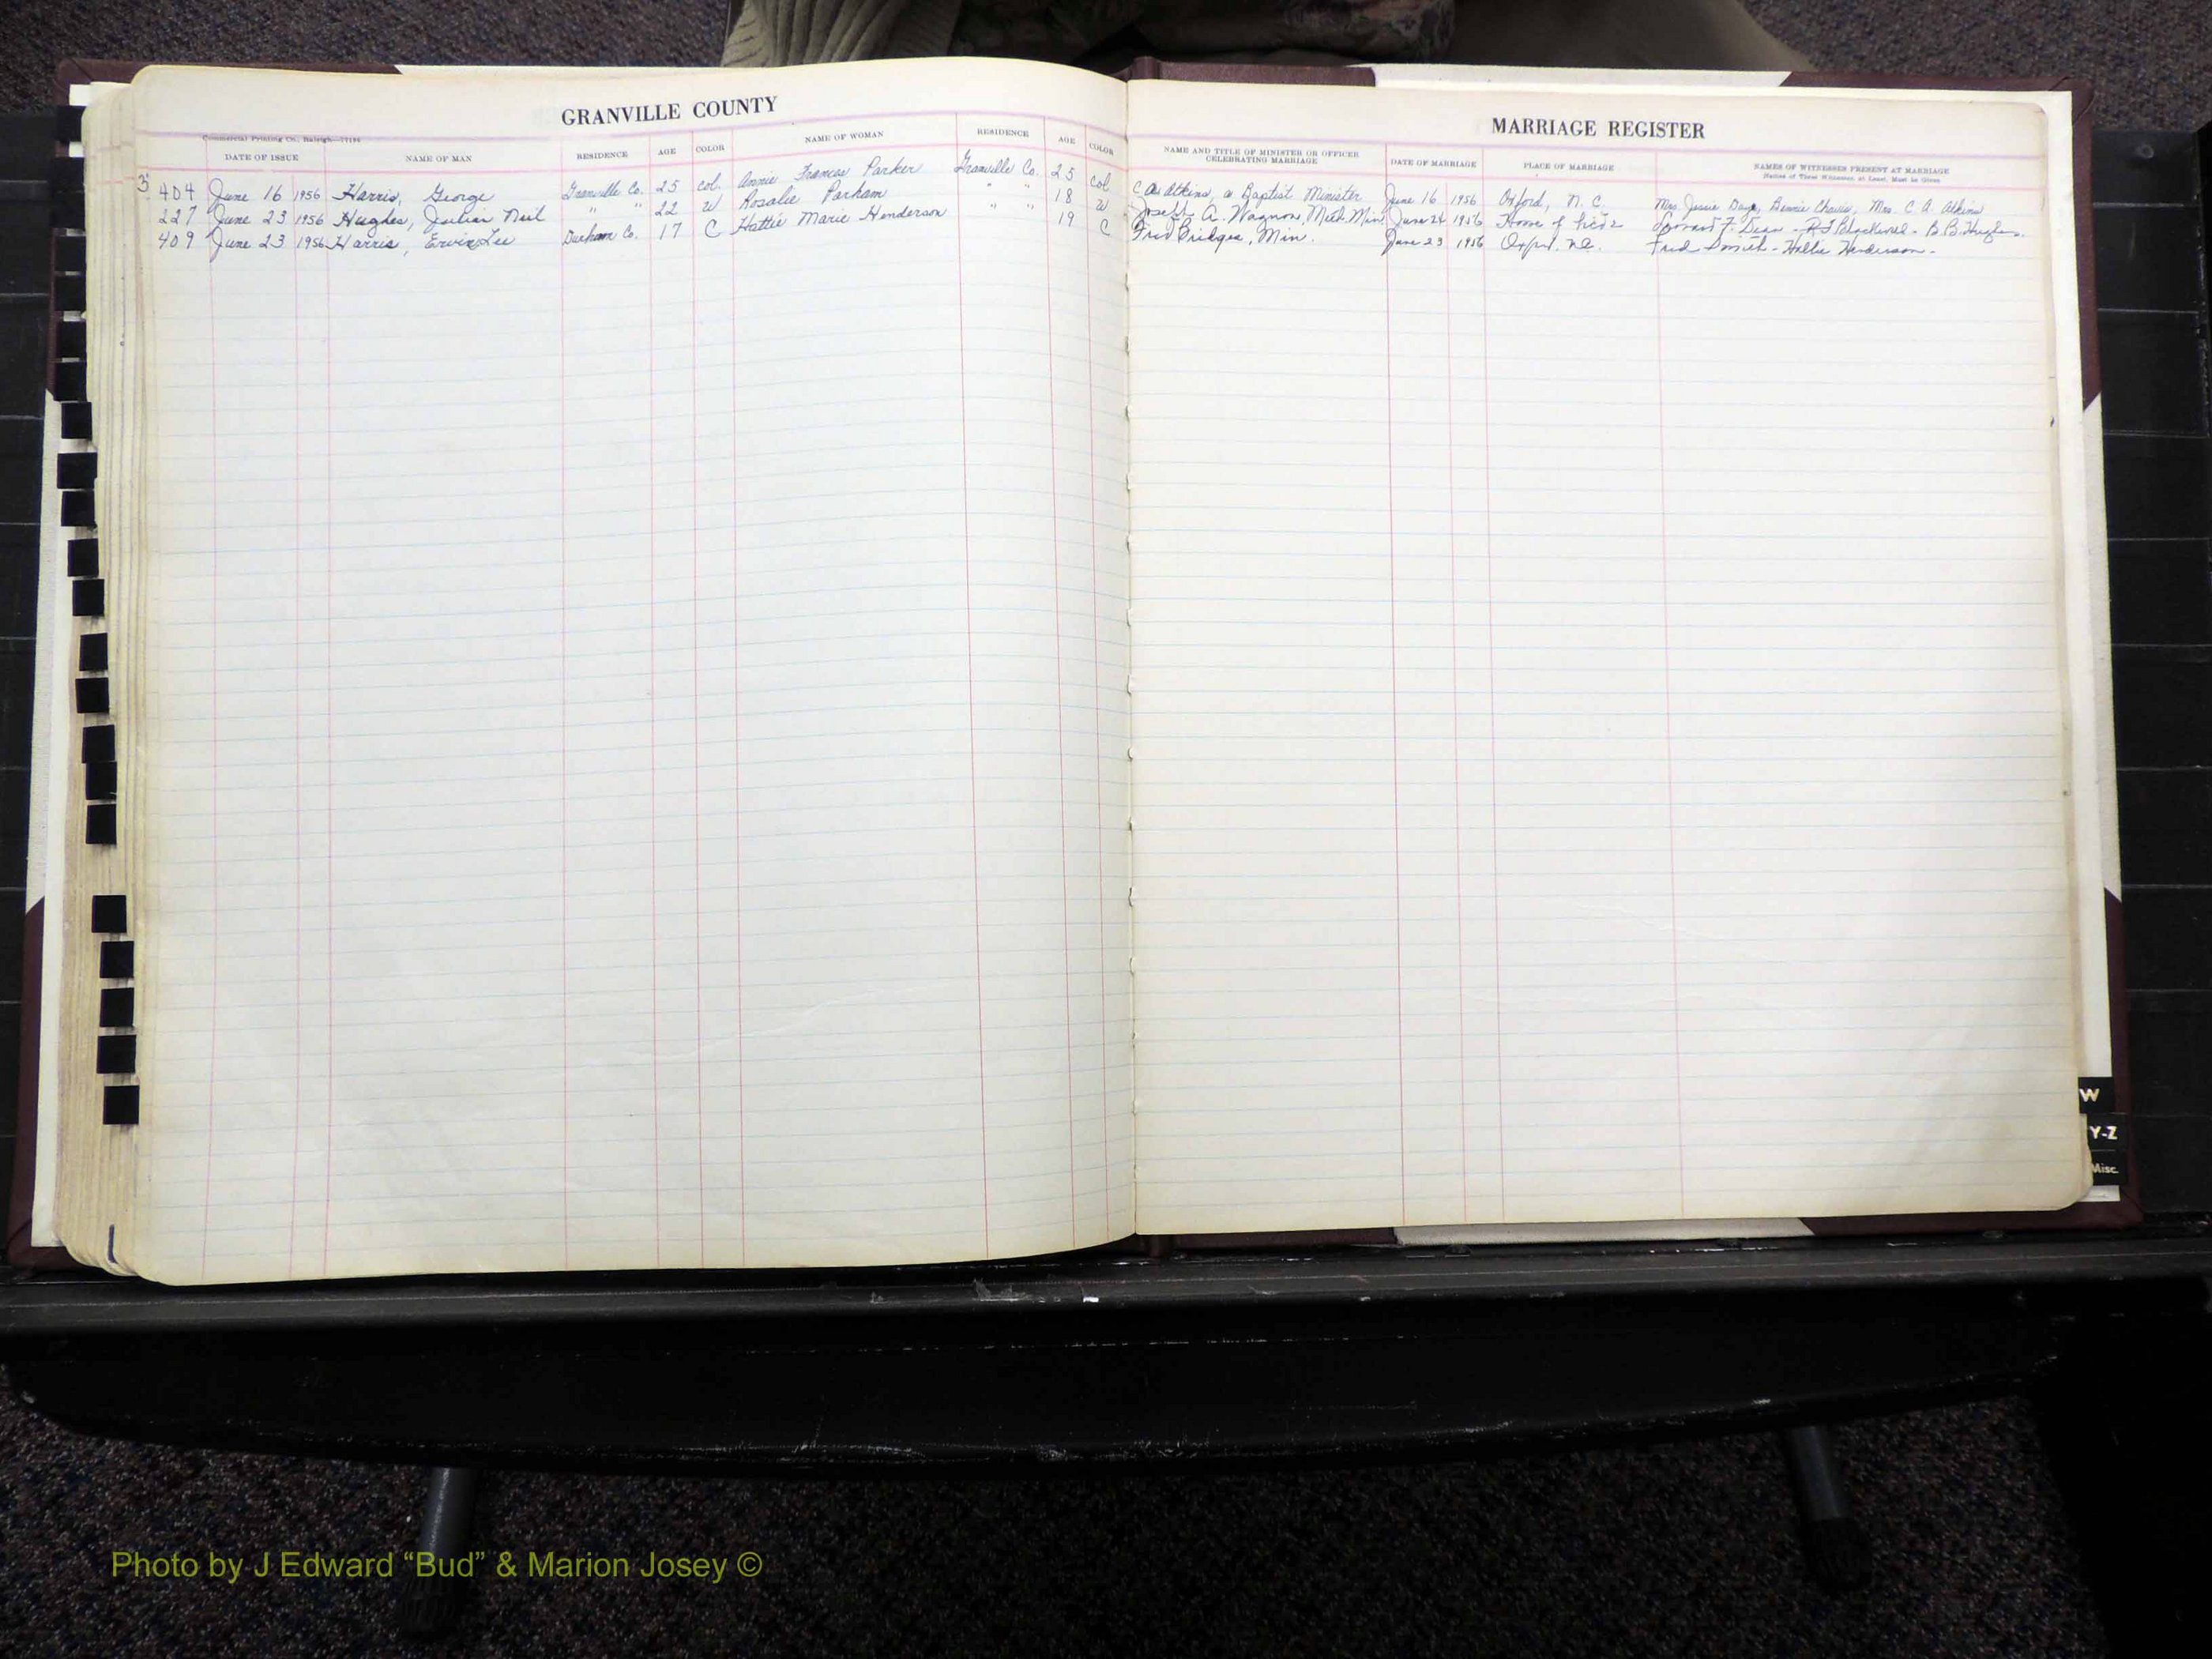 GRANVILLE COUNTY
Commercial Printing Co., Raleigh
DATE OF ISSUE NAME OF MAN RESIDENCE AGE COLOR NAME OF WOMAN RESIDENCE AGE COLOR
404 June 16 1956 Harris, George Granville Co. 25 col. Annie Frances Parker Granville Co. 25 col
227 June 23 1956 Hughes, Julian Neil " " 22 W Rosalie Parham " " 18 W
409 June 23 1956 Harris, Ervin Lee Durham Co. 17 C Hattie Marie Henderson " " 19 C
MARRIAGE REGISTER
NAME AND TITLE OF MINISTER OR OFFICER CELEBRATING MARRIAGE DATE OF MARRIAGE PLACE OF MARRIAGE NAMES OF WITNESSES PRESENT AT MARRIAGE
Names of Three Witnesses, at Least, Must be Given
C A Atkins, a Baptist Minister June 16 1956 Oxford, N. C. Mrs. Jessie Daye, Bennie Chavis, Mrs. C. A. Atkins
Joseph A. Wagnon, Meth. Min. June 24 1956 Home of F. Dean - Blackwell - B. B. Hughes.
Fred Bridges, Min. June 23 1956 Oxford. N.C. Fred Smith - Hattie Henderson -
W
Y-Z
Misc.
Photo by J Edward “Bud” & Marion Josey ©